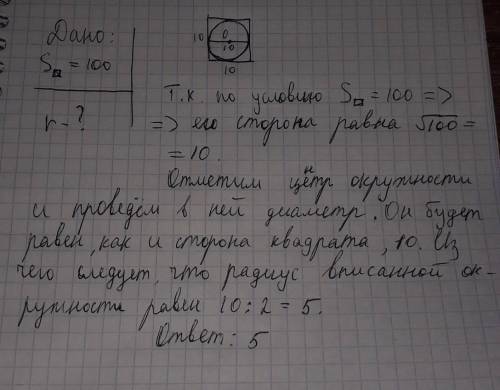 Дано:
S□ = 100
r - ?
0
10
10
10
Т.к. по условию S□ = 100 =>
=> его сторона равна √100 =
= 10.
Отметим центр окружности
и проведём в ней диаметр. Он будет
равен, как и сторона квадрата, 10. Из
чего следует, что радиус вписанной ок-
ружности равен 10 : 2 = 5.
Ответ: 5